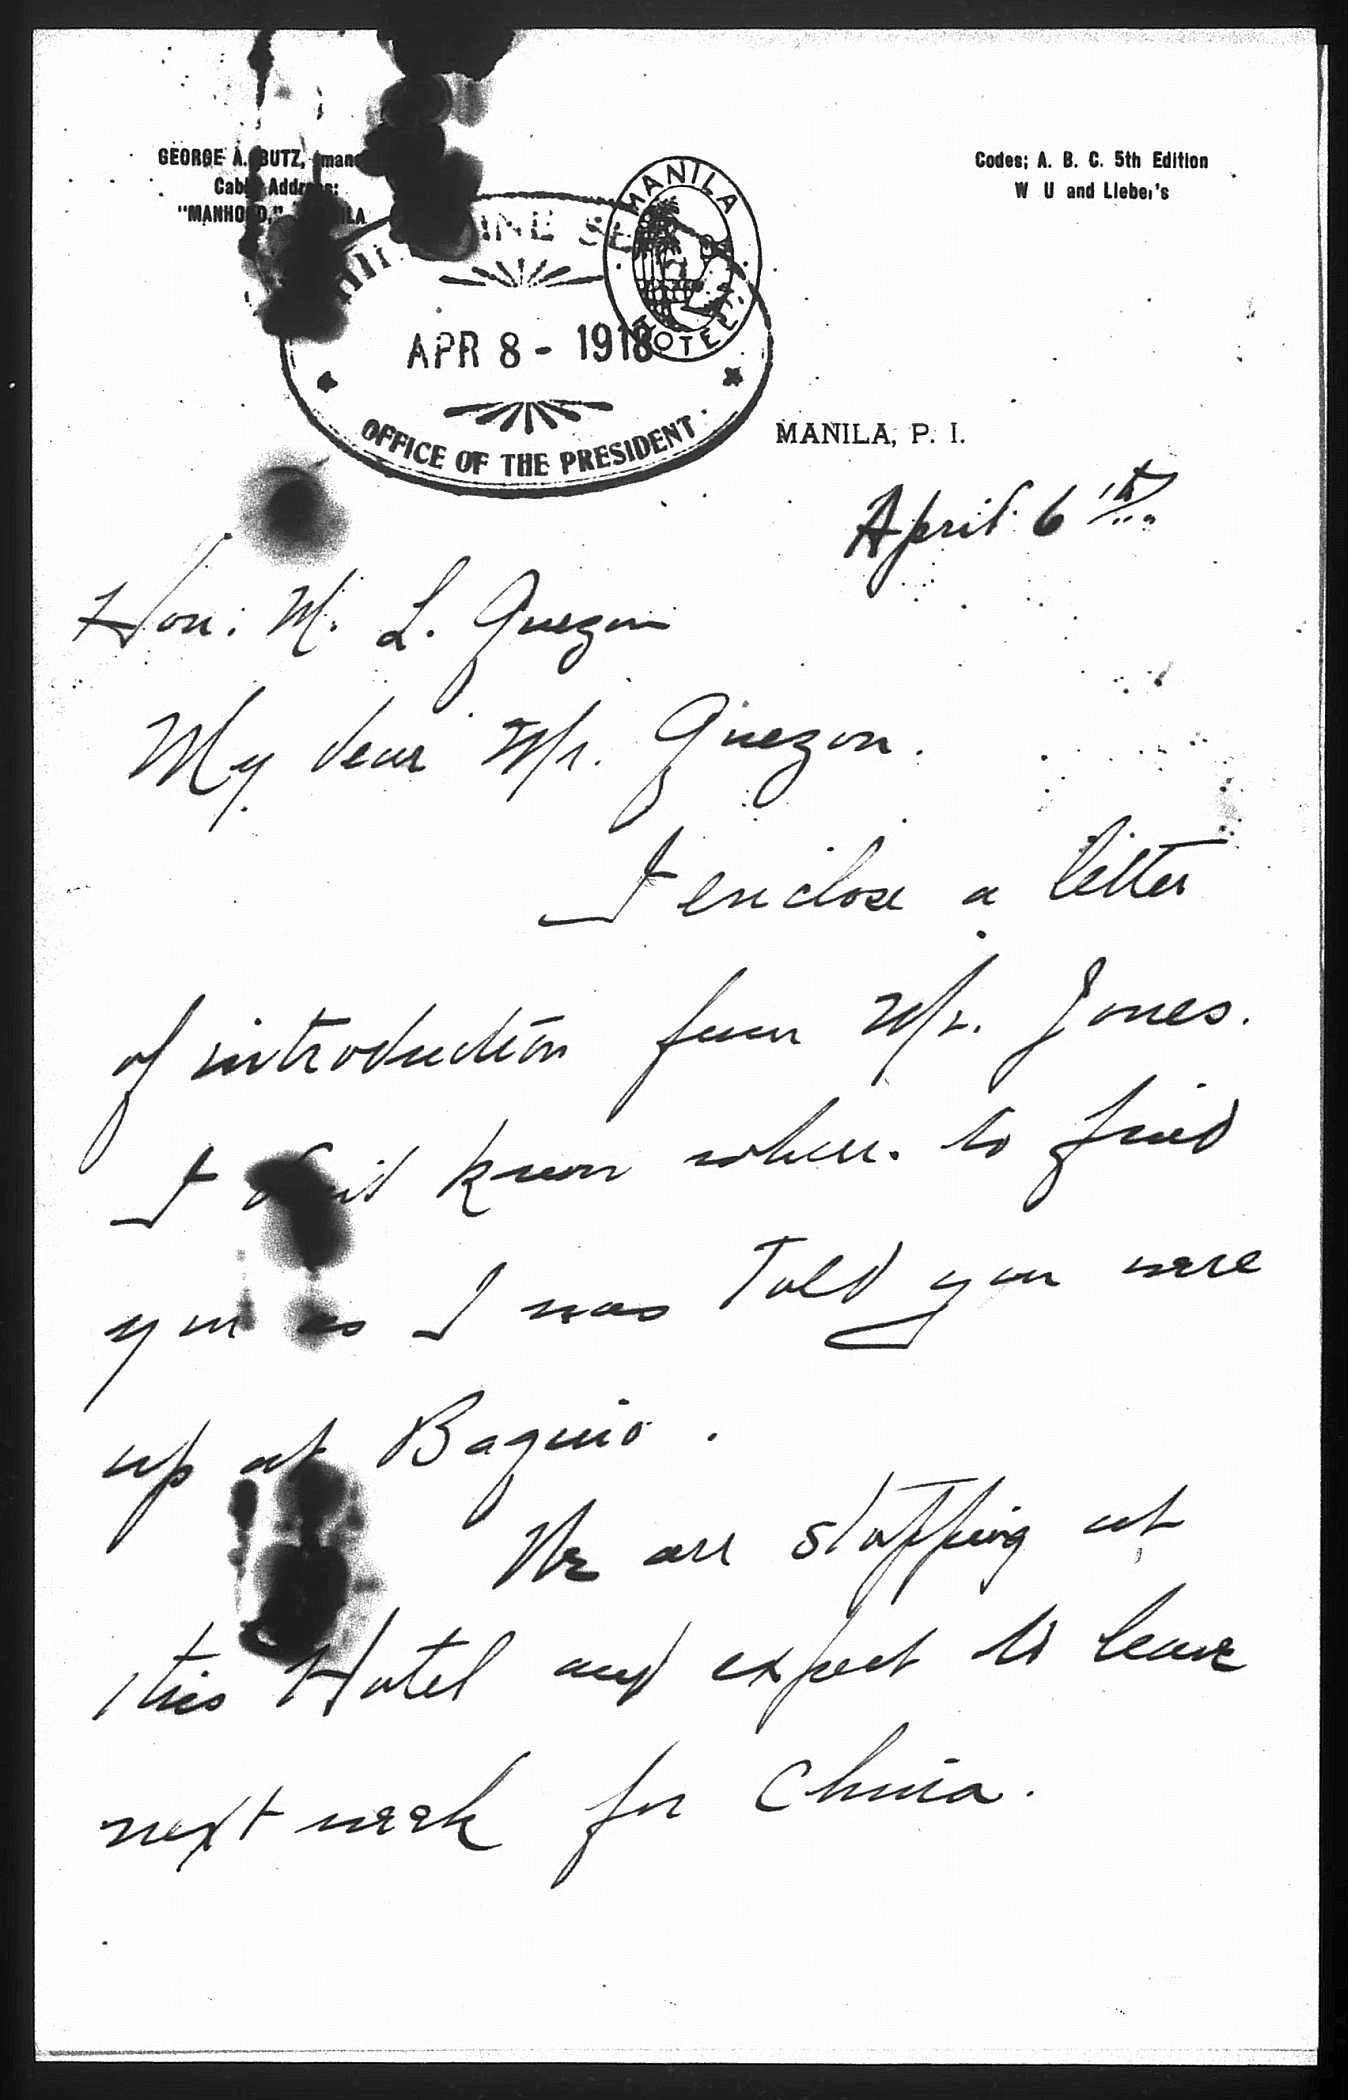 GEORGE A. BUTZ,
Cable Address:
"MANHOTO,"
Codes; A. B. C. 5th Edition
W U and Lieber's
MANILA
HOTEL
APR 8 - 1918
OFFICE OF THE PRESIDENT
MANILA, P. I.
April 6th
Hon: M. L. Quezon
My dear Mr. Quezon.
I enclose a letter
of introduction from Mr. Jones.
I don't know where to find
you as I was told you were
up at Baguio.
We are stopping at
this Hotel and expect to leave
next week for China.